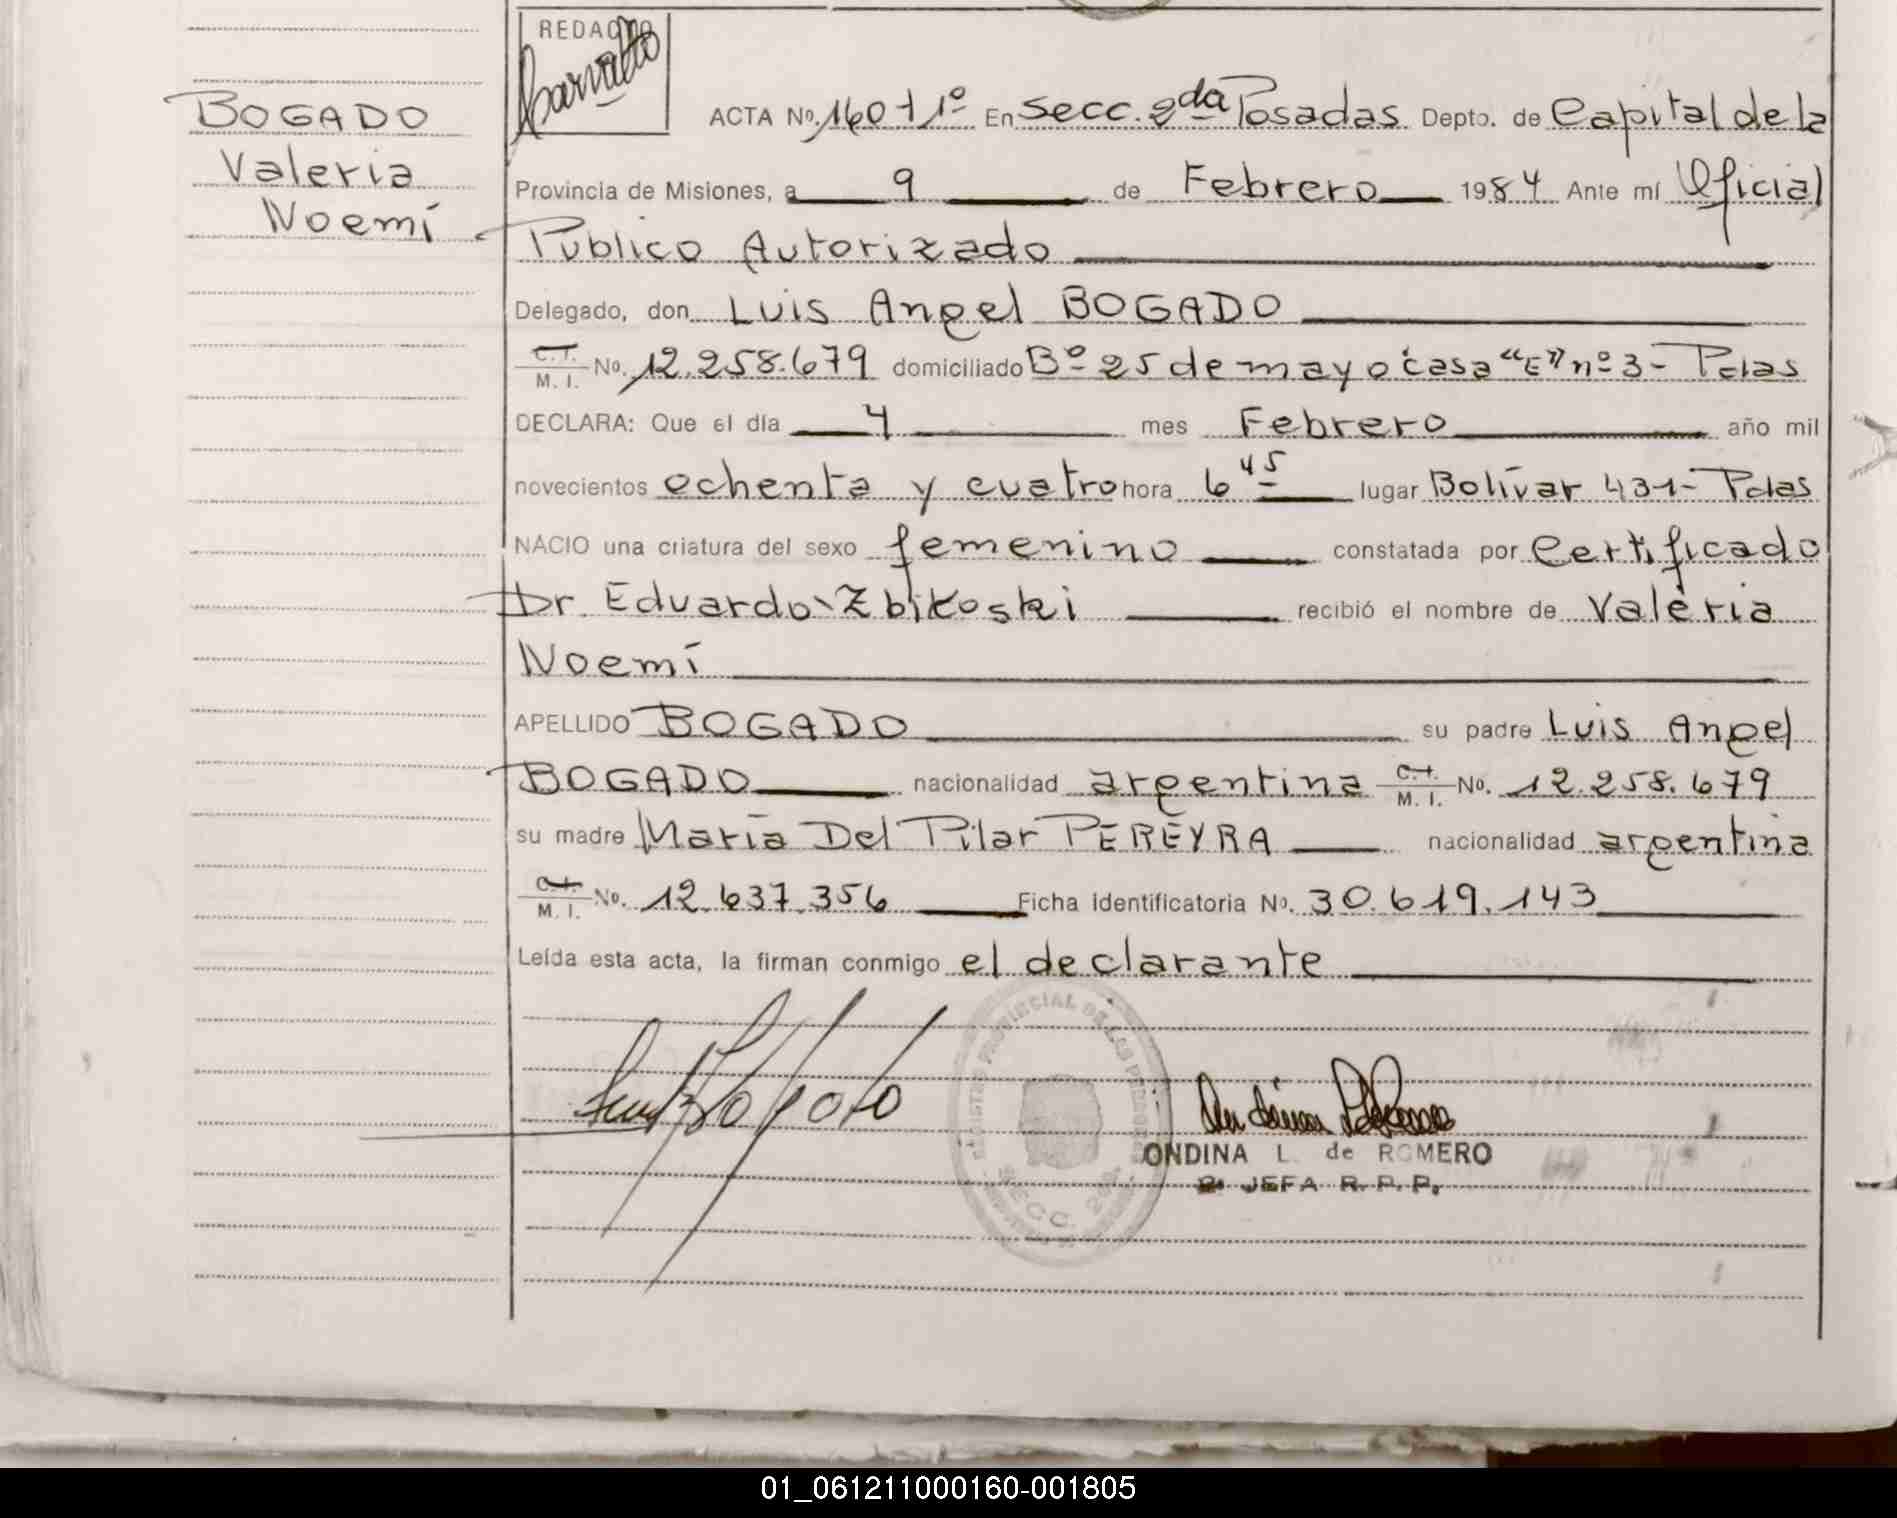 REDACTO
BOGADO
Valeria
Noemí
ACTA No. 160 t 1º En Secc. 2da Posadas Depto. de Capital de la
Provincia de Misiones, a 9 de Febrero 1984 Ante mí Oficial
Publico Autorizado
Delegado, don Luis Angel BOGADO
C.I. M. I. No. 12.258.679 domiciliado Bº 25 de mayo casa "E" nº 3 - Pdas
DECLARA: Que el día 4 mes Febrero año mil
novecientos ochenta y cuatro hora 6 45 lugar Bolívar 431 - Pdas
NACIO una criatura del sexo femenino constatada por Certificado
Dr. Eduardo Zbikoski recibió el nombre de Valeria
Noemí
APELLIDO BOGADO su padre Luis Angel
BOGADO nacionalidad argentina C.I. M. I. No. 12.258.679
su madre María Del Pilar PEREYRA nacionalidad argentina
C.I. M. I. No. 12.637.356 Ficha identificatoria No. 30.619.143
Leída esta acta, la firman conmigo el declarante
REGISTRO PROVINCIAL DE LAS PERSONAS
SECC. 2da
ONDINA L. de ROMERO
2º JEFA R. P. P.
01_061211000160-001805